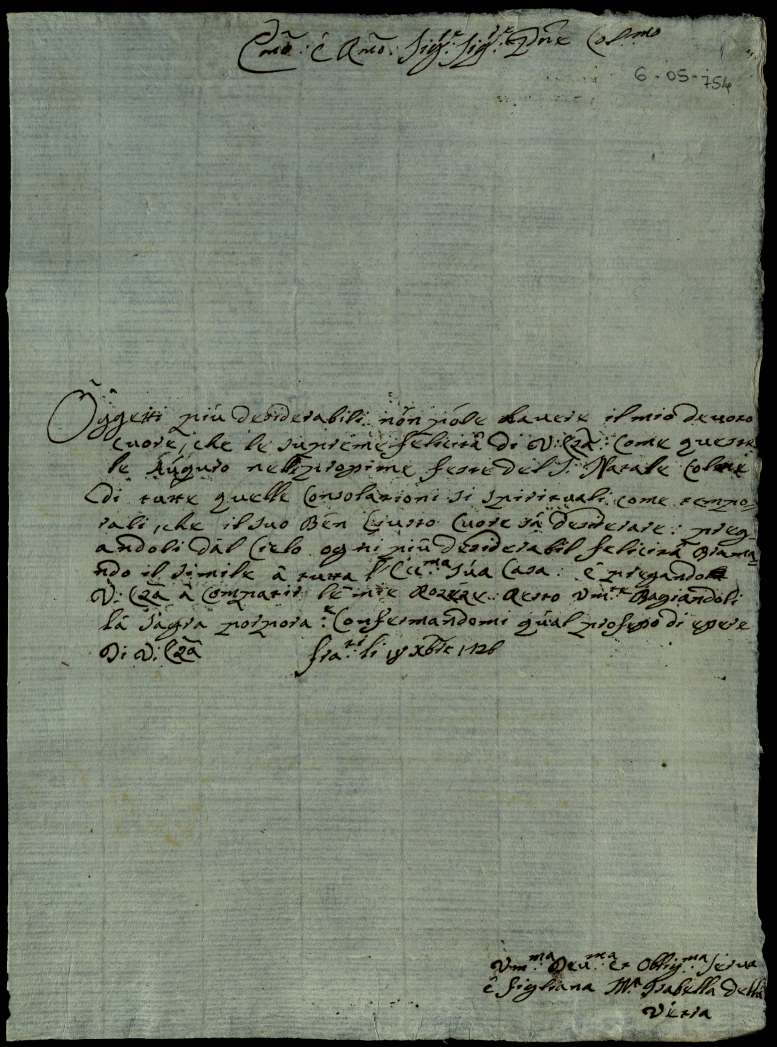 Emõ: é Rmõ: Sig:re Sig:re Prẽ Col:mo
6-05-754
Oggetti più desiderabili non pole havere il mio devoto
cuore, che le supreme felicità di V: Eza: come queste
le Auguro nelle prossime feste del S. Natale Colme
di tutte quelle Consolationi si spirituali come tempo
rali, che il suo Ben Giusto Cuore sà desiderare: preg
andoli dàl Cielo ogni più desiderabil felicità Brama
ndo il simile à tutta l'Ecc:ma sùa Casa: é pregando
V: Eza à Compatir le mie Resto Um:te Bagiandoli
là sagra porpora: e Confermandomi qùal proseso di esere
Di V: Eza li Xbre 1726
Um:ma Dev:ma et Oblig:ma Serva
é figliana M:a Isabella della
Veria